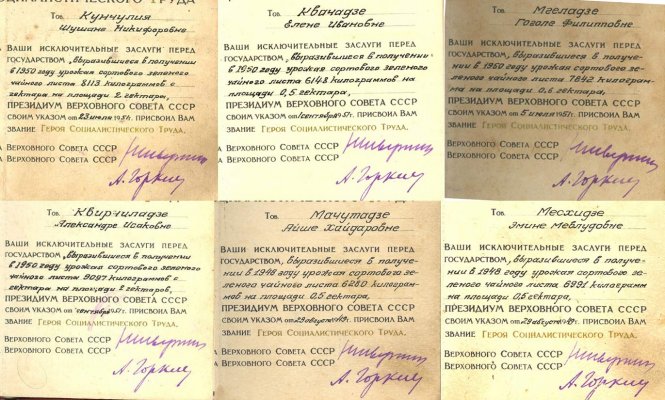 Тов. Кунчулия
Шушане Никифоровне
ВАШИ ИСКЛЮЧИТЕЛЬНЫЕ ЗАСЛУГИ ПЕРЕД
ГОСУДАРСТВОМ, выразившиеся в получении
в 1950 году урожая сортового зеленого
чайного листа 8113 килограммов с
гектара на площади 2 гектара,
ПРЕЗИДИУМ ВЕРХОВНОГО СОВЕТА СССР
СВОИМ УКАЗОМ от 23 июля 1951г. ПРИСВОИЛ ВАМ
ЗВАНИЕ ГЕРОЯ СОЦИАЛИСТИЧЕСКОГО ТРУДА.
ВЕРХОВНОГО СОВЕТА СССР
А ВЕРХОВНОГО СОВЕТА СССР
А. Горкин
Тов. Квачадзе
Елене Ивановне
ВАШИ ИСКЛЮЧИТЕЛЬНЫЕ ЗАСЛУГИ ПЕРЕД
ГОСУДАРСТВОМ, выразившиеся в получении
в 1950 году урожая сортового зеленого
чайного листа 6143 килограммов на
площади 0,5 гектара,
ПРЕЗИДИУМ ВЕРХОВНОГО СОВЕТА СССР
СВОИМ УКАЗОМ от 1 сентября 51г. ПРИСВОИЛ ВАМ
ЗВАНИЕ ГЕРОЯ СОЦИАЛИСТИЧЕСКОГО ТРУДА.
А ВЕРХОВНОГО СОВЕТА СССР
А ВЕРХОВНОГО СОВЕТА СССР
А. Горкин
Тов. Мгеладзе
Гоголе Филипповне
ВАШИ ИСКЛЮЧИТЕЛЬНЫЕ ЗАСЛУГИ ПЕРЕД
ГОСУДАРСТВОМ, выразившиеся в получе-
нии в 1950 году урожая сортового зе-
леного чайного листа 7842 килограм-
ма на площади 0,6 гектара,
ПРЕЗИДИУМ ВЕРХОВНОГО СОВЕТА СССР
СВОИМ УКАЗОМ от 5 июля 1951г. ПРИСВОИЛ ВАМ
ЗВАНИЕ ГЕРОЯ СОЦИАЛИСТИЧЕСКОГО ТРУДА.
ВЕРХОВНОГО СОВЕТА СССР
ВЕРХОВНОГО СОВЕТА СССР
А. Горкин
Тов. Квирчиладзе
Александре Исаковне
ВАШИ ИСКЛЮЧИТЕЛЬНЫЕ ЗАСЛУГИ ПЕРЕД
ГОСУДАРСТВОМ, выразившиеся в получении
в 1950 году урожая сортового зеленого
чайного листа 9097 килограммов с
гектара на площади 2 гектаров,
ПРЕЗИДИУМ ВЕРХОВНОГО СОВЕТА СССР
СВОИМ УКАЗОМ от сентября 51г. ПРИСВОИЛ ВАМ
ЗВАНИЕ ГЕРОЯ СОЦИАЛИСТИЧЕСКОГО ТРУДА.
ВЕРХОВНОГО СОВЕТА СССР
ВЕРХОВНОГО СОВЕТА СССР
А. Горкин
Тов. Мачутадзе
Айше Хайдаровне
ВАШИ ИСКЛЮЧИТЕЛЬНЫЕ ЗАСЛУГИ ПЕРЕД
ГОСУДАРСТВОМ, выразившиеся в получе-
нии в 1948 году урожая сортового зе-
леного чайного листа 6280 килограм-
мов на площади 0,5 гектара,
ПРЕЗИДИУМ ВЕРХОВНОГО СОВЕТА СССР
СВОИМ УКАЗОМ от 29 августа 49г. ПРИСВОИЛ ВАМ
ЗВАНИЕ ГЕРОЯ СОЦИАЛИСТИЧЕСКОГО ТРУДА.
ВЕРХОВНОГО СОВЕТА СССР
А ВЕРХОВНОГО СОВЕТА СССР
А. Горкин
Тов. Месхидзе
Эмине Меблудовне
ВАШИ ИСКЛЮЧИТЕЛЬНЫЕ ЗАСЛУГИ ПЕРЕД
ГОСУДАРСТВОМ, выразившиеся в получе-
нии в 1948 году урожая сортового зе-
леного чайного листа 6991 килограмм
на площади 0,5 гектара,
ПРЕЗИДИУМ ВЕРХОВНОГО СОВЕТА СССР
СВОИМ УКАЗОМ от 29 августа 49г. ПРИСВОИЛ ВАМ
ЗВАНИЕ ГЕРОЯ СОЦИАЛИСТИЧЕСКОГО ТРУДА.
ВЕРХОВНОГО СОВЕТА СССР
ВЕРХОВНОГО СОВЕТА СССР
А. Горкин